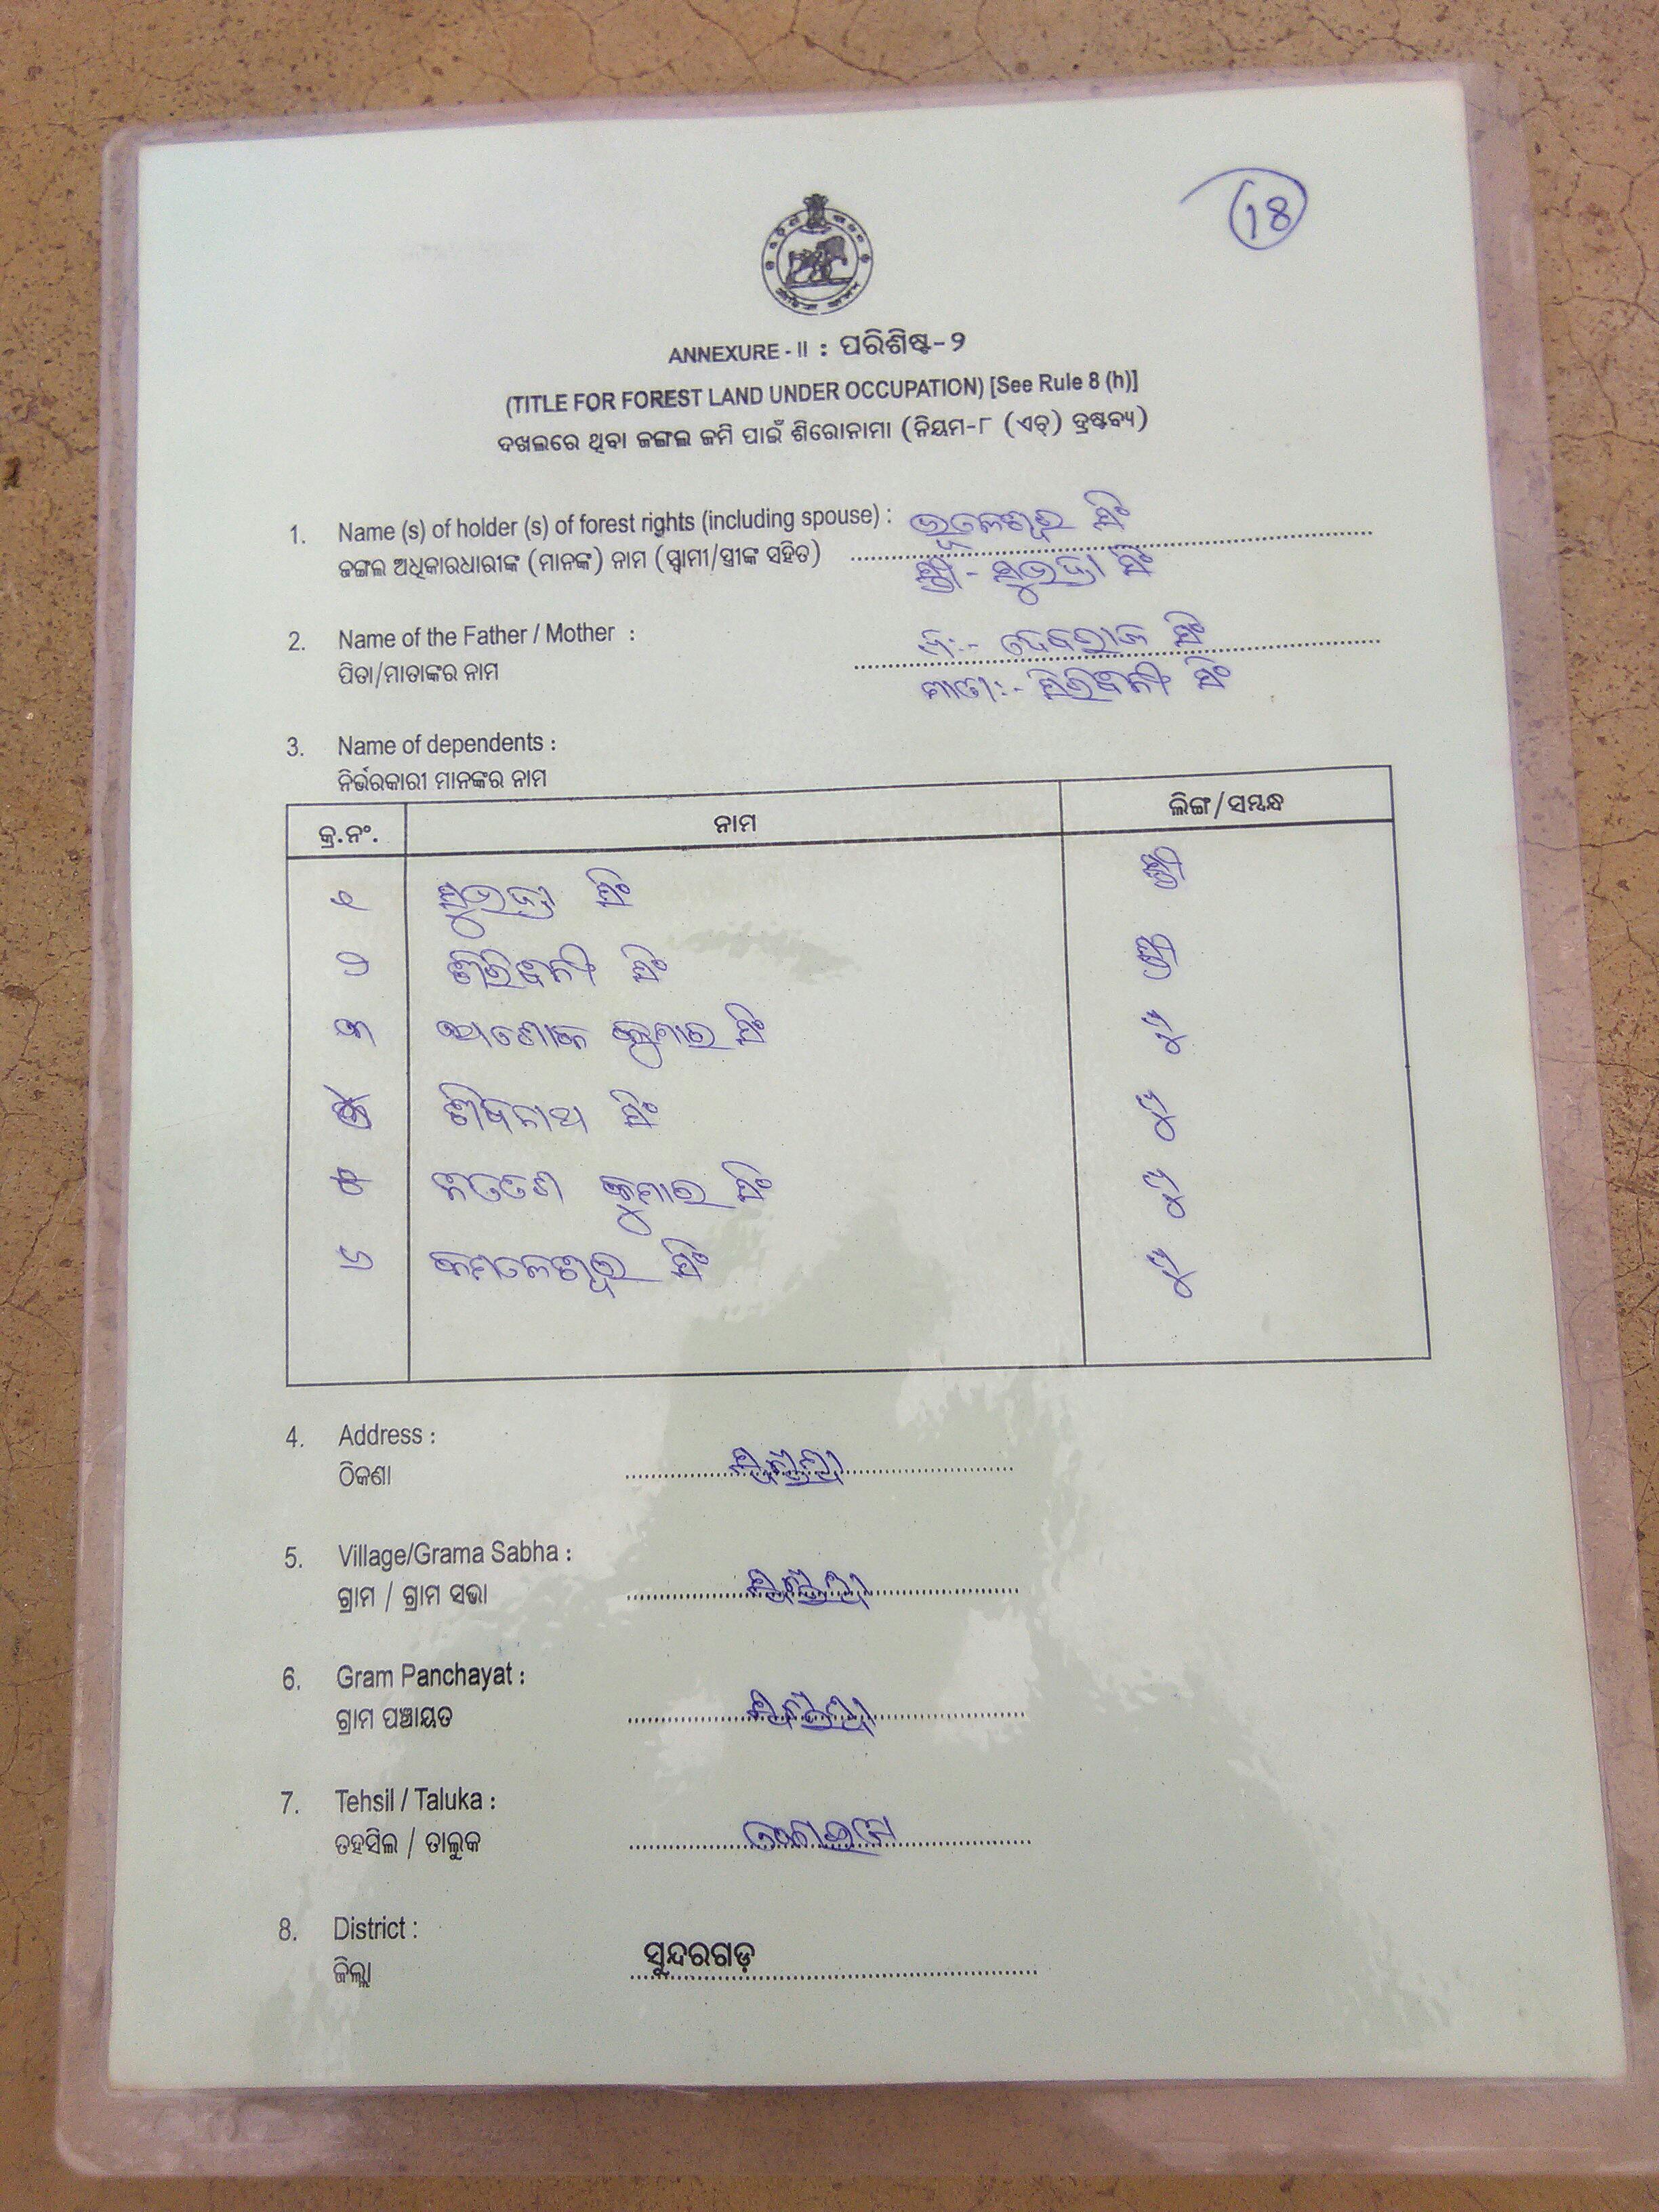 18
ANNEXURE - II : ପରିଶିଷ୍ଟ-୨
(TITLE FOR FOREST LAND UNDER OCCUPATION) [See Rule 8 (h)]
ଦଖଲରେ ଥିବା ଜଙ୍ଗଲ ଜମି ପାଇଁ ଶିରୋନାମା (ନିୟମ-୮ (ଏଚ୍) ଦ୍ରଷ୍ଟବ୍ୟ)
1. Name (s) of holder (s) of forest rights (including spouse) : ଭୂତଳେଶ୍ୱର ସିଂ
ଜଙ୍ଗଲ ଅଧିକାରଧାରୀଙ୍କ (ମାନଙ୍କ) ନାମ (ସ୍ୱାମୀ/ସ୍ତ୍ରୀଙ୍କ ସହିତ) ସ୍ତ୍ରୀ - ସୁଭଦ୍ରା ସିଂ
2. Name of the Father / Mother : ପି:- ଦେବରାଜ ସିଂ
ପିତା/ମାତାଙ୍କର ନାମ ମାତା:- ସିଂ
3. Name of dependents :
ନିର୍ଭରକାରୀ ମାନଙ୍କର ନାମ
କ୍ର.ନଂ. ନାମ ଲିଙ୍ଗ/ସମ୍ବନ୍ଧ
୧ ସୁଭଦ୍ରା ସିଂ ସ୍ତ୍ରୀ
୨ ସିଂ ସ୍ତ୍ରୀ
୩ ଅଶୋକ କୁମାର ସିଂ ପୁ
୪ ସିଂ ପୁ
୫ କୁମାର ସିଂ ପୁ
୬ କମଳେଶ୍ୱର ସିଂ ପୁ
4. Address :
ଠିକଣା
5. Village/Grama Sabha :
ଗ୍ରାମ / ଗ୍ରାମ ସଭା
6. Gram Panchayat :
ଗ୍ରାମ ପଞ୍ଚାୟତ
7. Tehsil / Taluka :
ତହସିଲ / ତାଲୁକ
8. District :
ଜିଲ୍ଲା ସୁନ୍ଦରଗଡ଼